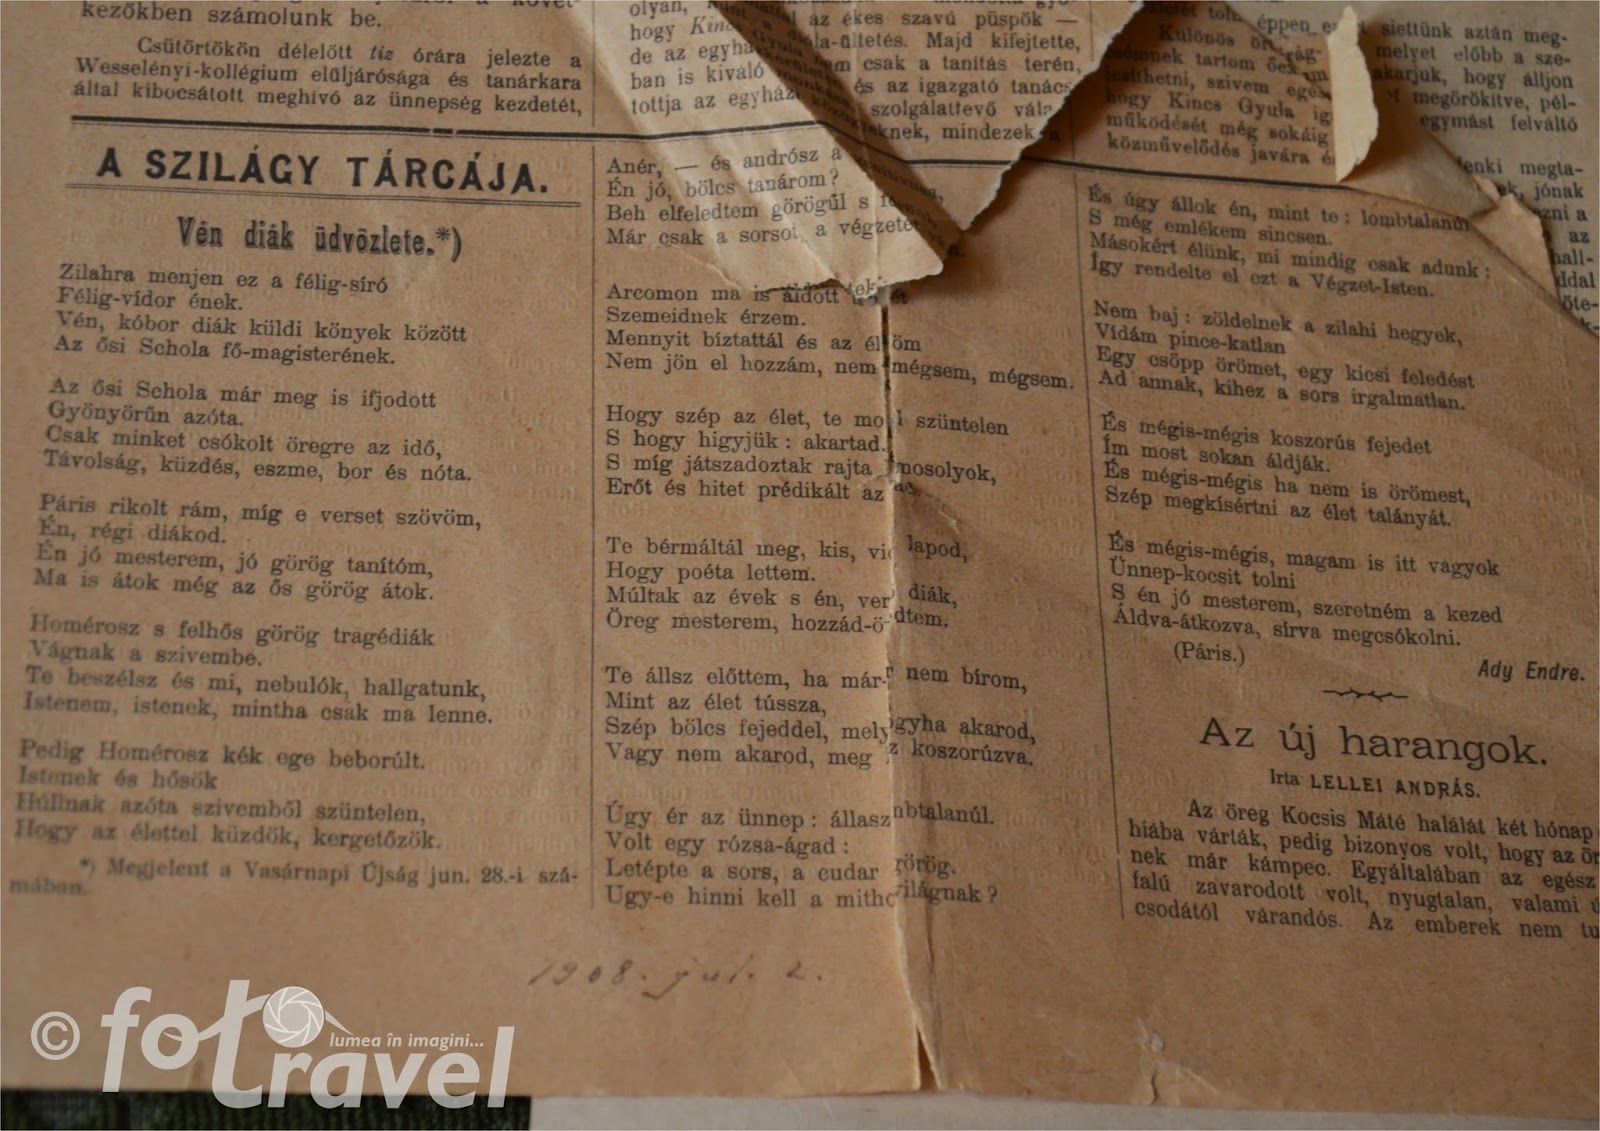 kezőkben számolunk be.
Csütörtökön délelőtt tiz órára jelezte a
Wesselényi-kollégium elüljárósága és tanárkara
által kibocsátott meghívó az ünnepség kezdetét,
olyan, mint a
hogy Kincs
de az egyhá
ban is kiváló
tottja az egyház
az ékes szavú püspök —
Majd kifejtette,
csak a tanítás terén,
és az igazgató tanács
szolgálattevő
mindezek a
Különös
tartom
szivem
hogy Kincs Gyula
működését még sokáig
közművelődés javára
éppen
siettünk aztán meg-
melyet előbb a sze-
akarjuk, hogy álljon
megörökítve, pél-
egymást felváltó
megta-
jónak
az
A SZILÁGY TÁRCÁJA.
Vén diák üdvözlete.*)
Zilahra menjen ez a félig-síró
Félig-vídor ének.
Vén, kóbor diák küldi könyek között
Az ősi Schola fő-magisterének.
Az ősi Schola már meg is ifjodott
Gyönyörűn azóta.
Csak minket csókolt öregre az idő,
Távolság, küzdés, eszme, bor és nóta.
Páris rikolt rám, míg e verset szövöm,
Én, régi diákod.
Én jó mesterem, jó görög tanítóm,
Ma is átok még az ős görög átok.
Homérosz s felhős görög tragédiák
Vágnak a szivembe.
Te beszélsz és mi, nebulók, hallgatunk,
Istenem, istenek, mintha csak ma lenne.
Pedig Homérosz kék ege beborúlt.
Istenek és hősök
Húllnak azóta szivemből szüntelen,
Hogy az élettel küzdök, kergetőzök.
*) Megjelent a Vasárnapi Újság jun. 28.-i szá-
mában.
Anér, — és andrósz a
Én jó, bölcs tanárom?
Beh elfeledtem görögűl s
Már csak a sorsot, a végzetet
Arcomon ma is áldott
Szemeidnek érzem.
Mennyit bíztattál és az öröm
Nem jön el hozzám, nem mégsem, mégsem.
Hogy szép az élet, te mo szüntelen
S hogy higyjük : akartad.
S míg játszadoztak rajta mosolyok,
Erőt és hitet prédikált az
Te bérmáltál meg, kis, vi lapod,
Hogy poéta lettem.
Múltak az évek s én, ver diák,
Öreg mesterem, hozzád-ö dtem.
Te állsz előttem, ha már nem bírom,
Mint az élet tússza,
Szép bölcs fejeddel, mely ogyha akarod,
Vagy nem akarod, meg koszorúzva.
Úgy ér az ünnep : állasz mbtalanúl.
Volt egy rózsa-ágad :
Letépte a sors, a cudar görög.
Ugy-e hinni kell a mitho világnak ?
És úgy állok én, mint te : lombtalanúl
S még emlékem sincsen.
Másokért élünk, mi mindig csak adunk :
Így rendelte el ezt a Végzet-Isten.
Nem baj : zöldelnek a zilahi hegyek,
Vídám pince-katlan
Egy csöpp örömet, egy kicsi feledést
Ad annak, kihez a sors irgalmatlan.
És mégis-mégis koszorús fejedet
Ím most sokan áldják.
És mégis-mégis ha nem is örömest,
Szép megkísértni az élet talányát.
És mégis-mégis, magam is itt vagyok
Ünnep-kocsit tolni
S én jó mesterem, szeretném a kezed
Áldva-átkozva, sírva megcsókolni.
(Páris.)
Ady Endre.
Az új harangok.
Irta LELLEI ANDRÁS.
Az öreg Kocsis Máté halálát két hónap
hiába várták, pedig bizonyos volt, hogy az ör
nek már kámpec. Egyáltalában az egész
falú zavarodott volt, nyugtalan, valami
csodától várandós. Az emberek nem tu
1908. jul. 2.
© fototravel
lumea în imagini...